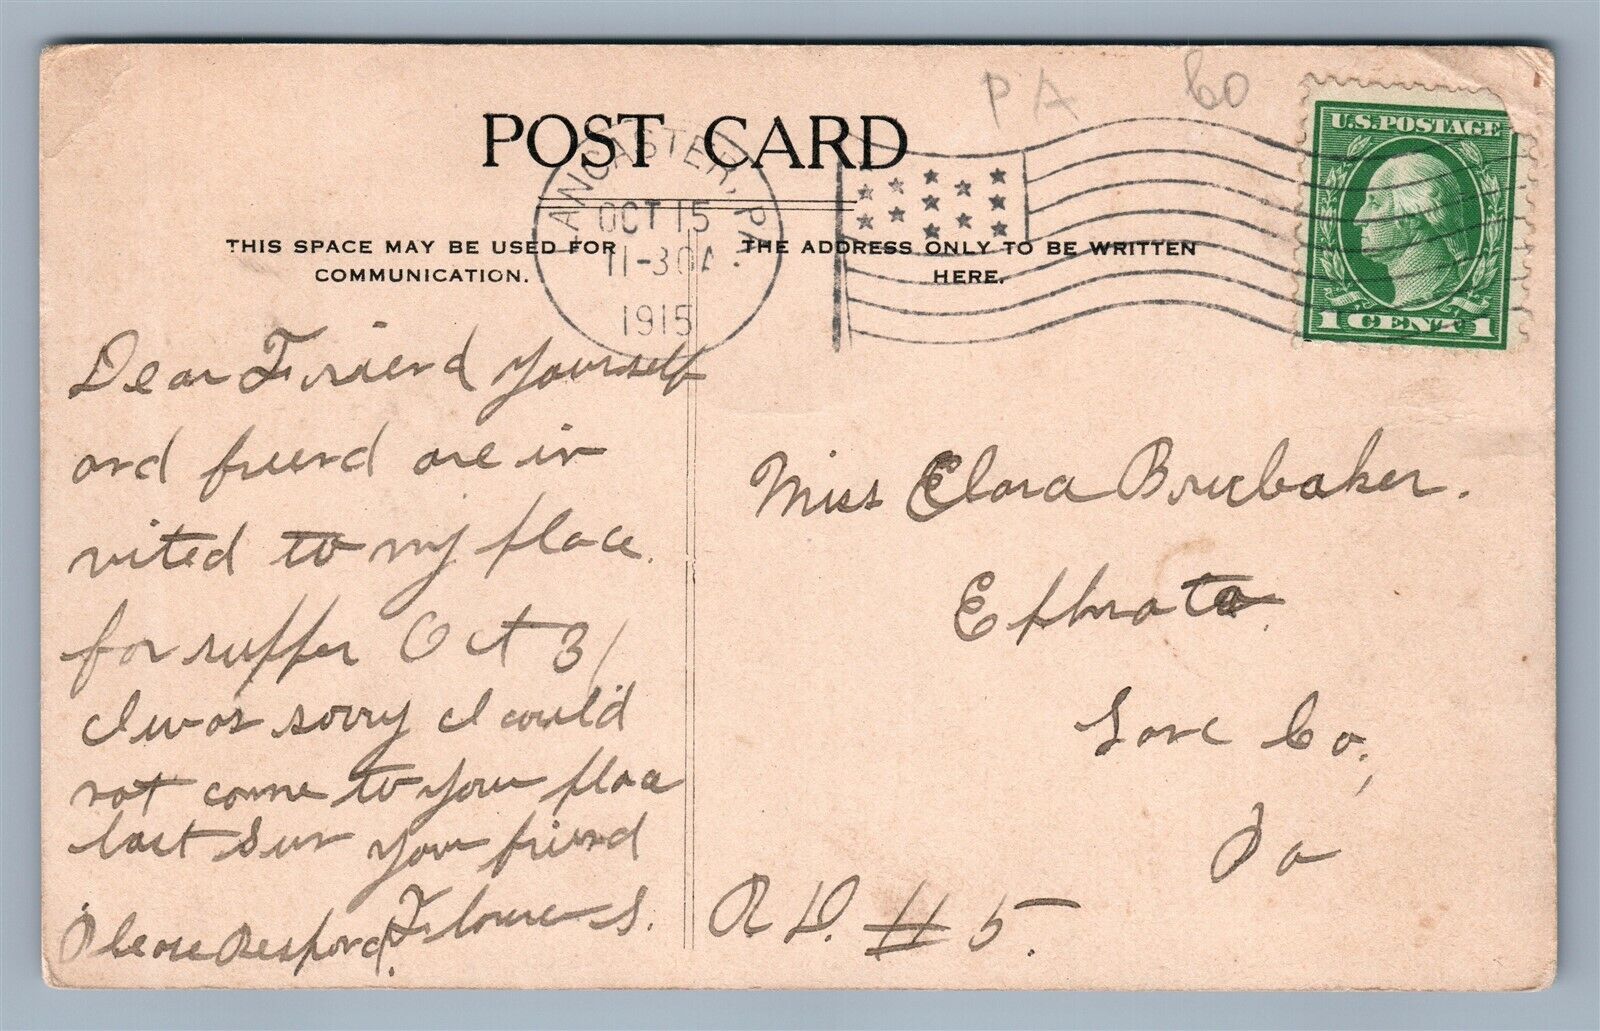 PA 60
POST CARD
LANCASTER, PA.
OCT 15
11-30A
1915
U.S. POSTAGE
1 CENT 1
THIS SPACE MAY BE USED FOR
COMMUNICATION.
THE ADDRESS ONLY TO BE WRITTEN
HERE.
Dear Friend yourself
and friend are in
vited to my place.
for supper Oct 31
I was sorry I could
not come to your place
last Sun your friend
Please Respond. Florence S.
Miss Clara Brubaker.
Ephrata
Lanc Co.,
Pa
R D. # 5.